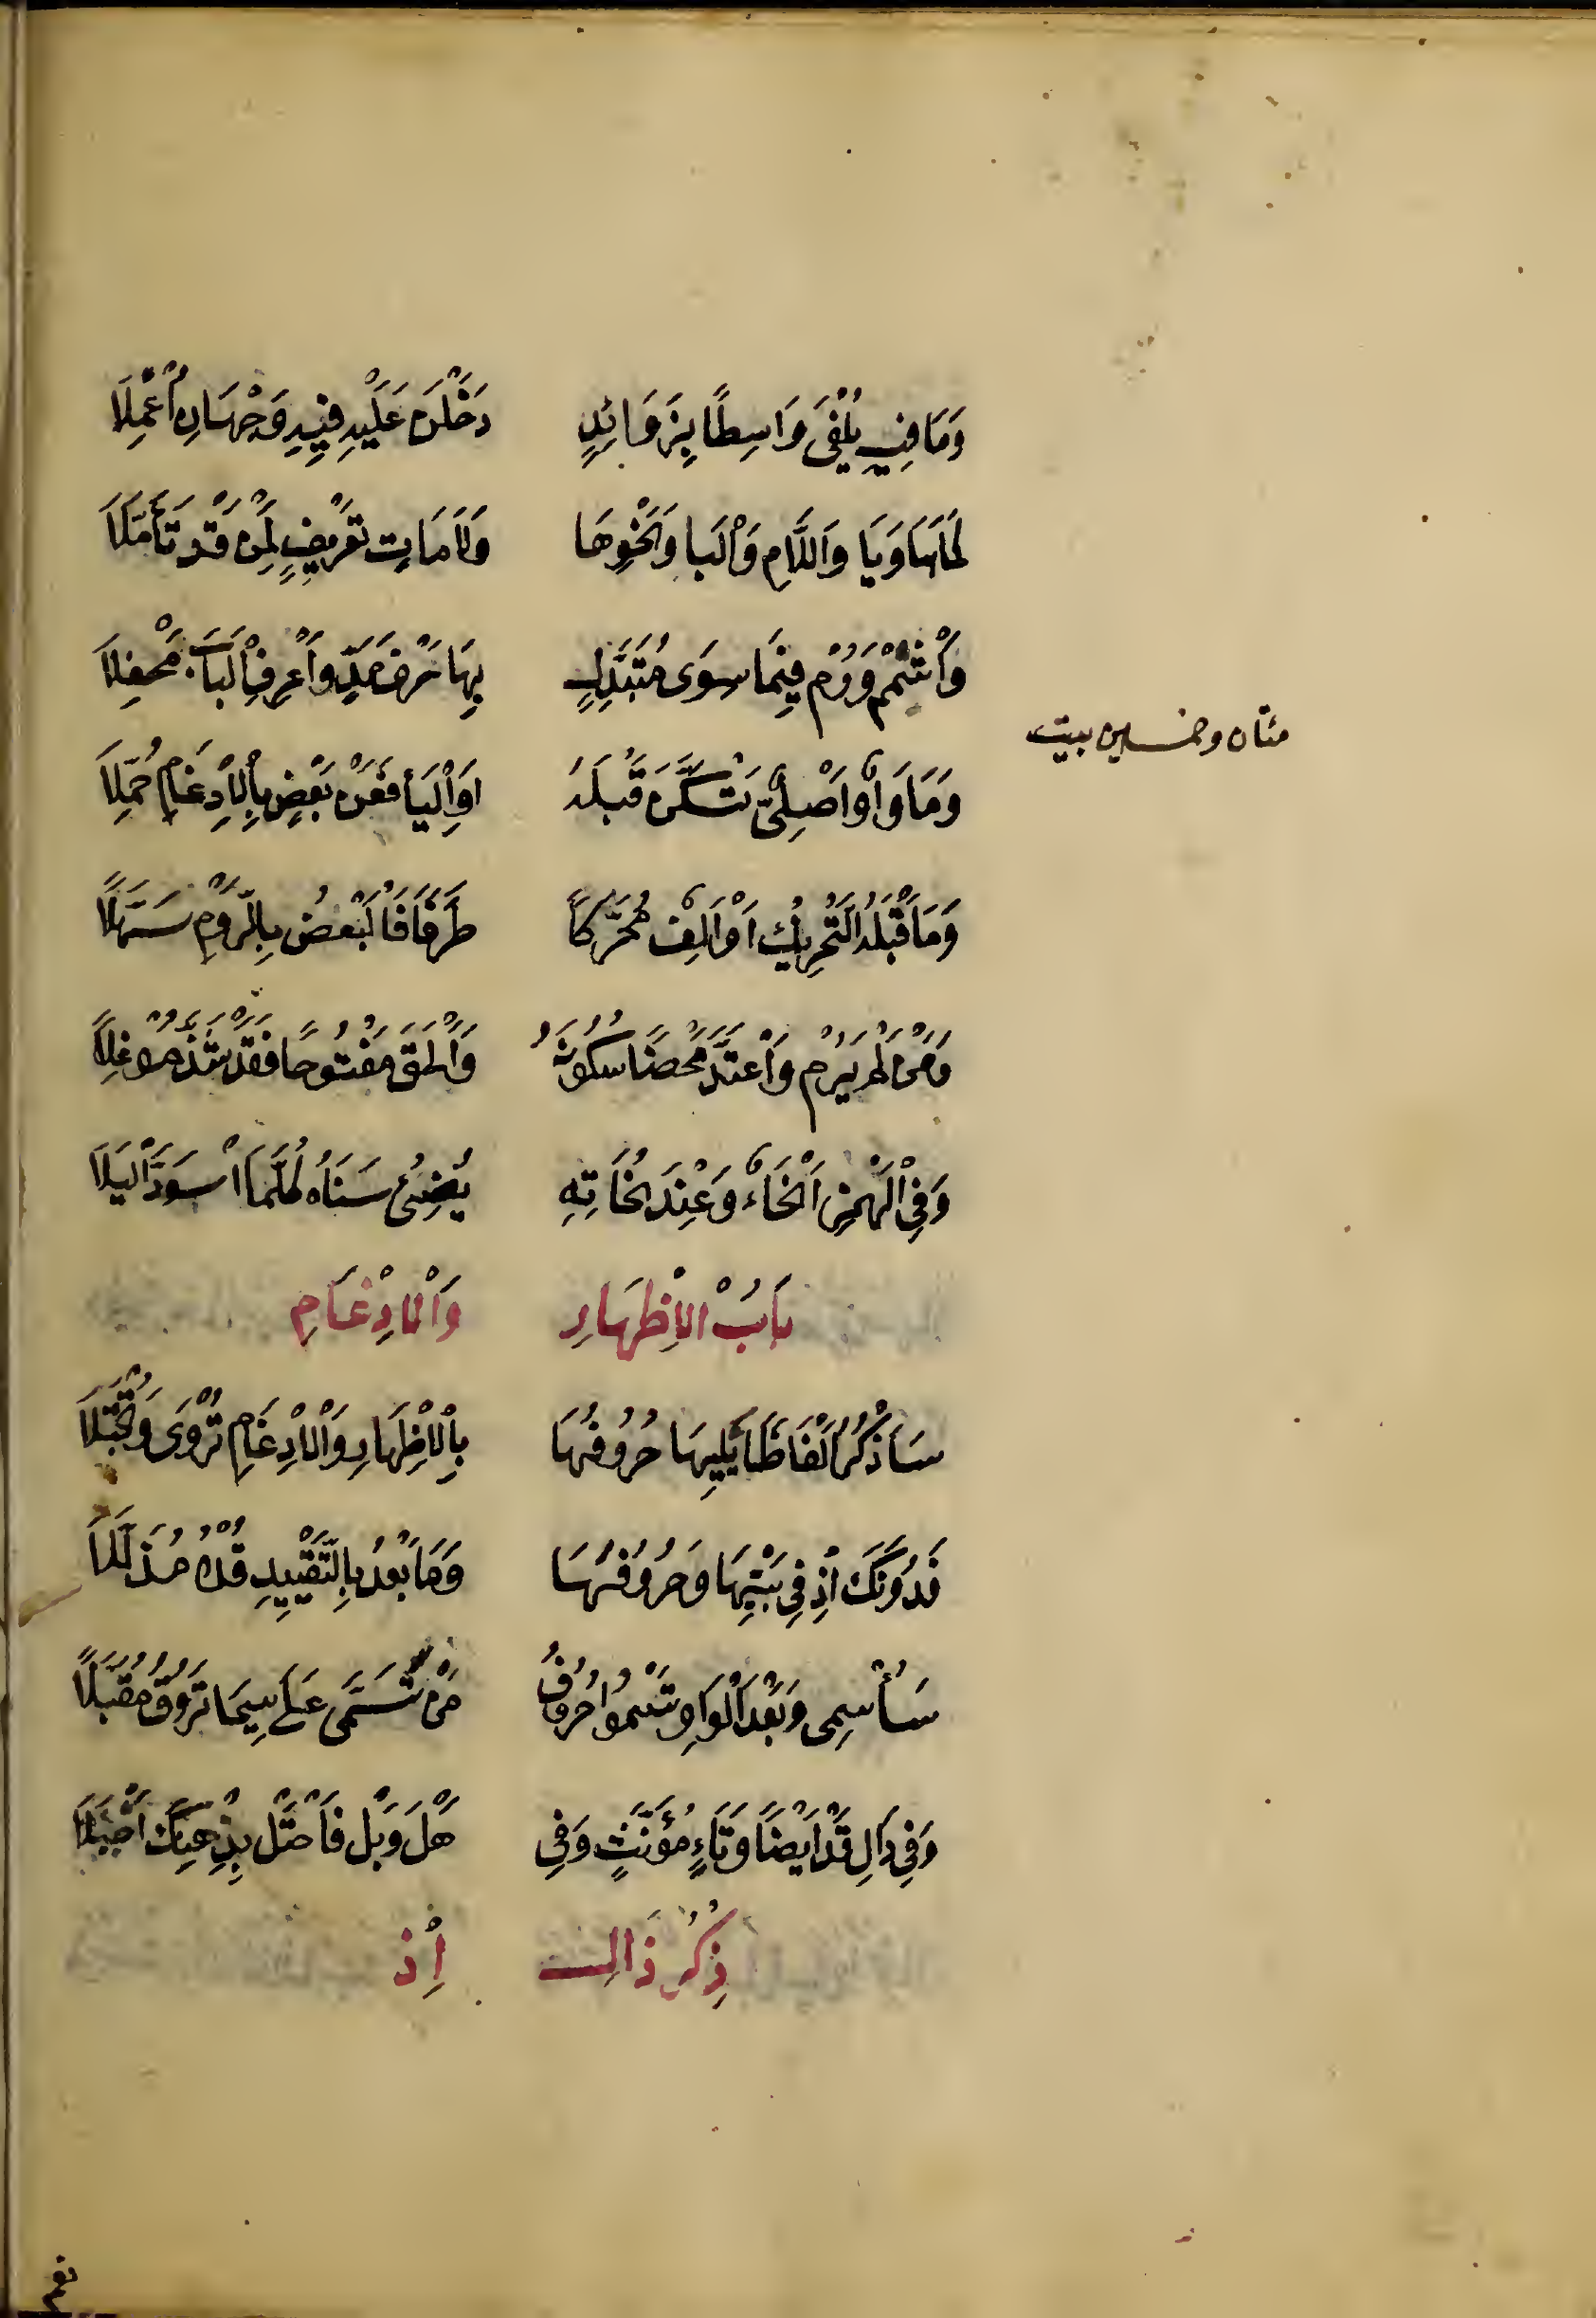 وَمَا فِيهِ يُلْفَى وَاسِطًا بِزَوَائِدٍ دَخَلْنَ عَلَيْهِ فِيهِ وَجْهَانِ أُعْمِلَا
كَمَا هَا وَيَا وَاللَّامِ وَالْبَا وَنَحْوِهَا وَلَامَاتِ تَعْرِيفٍ لِمَنْ قَدْ تَأَمَّلَا
وَأَشْمِمْ وَرُمْ فِيمَا سِوَى مُتَبَدِّلٍ بِهَا حَرْفَ مَدٍّ وَاعْرِفِ الْبَابَ مَحْفِلَا
مئتان وخمسين بيت
وَمَا وَاوٌ أَصْلِيٌّ تَسَكَّنَ قَبْلَهُ أَوِ الْيَا فَعَنْ بَعْضٍ بِالْإِدْغَامِ حُمِّلَا
وَمَا قَبْلَهُ التَّحْرِيكُ أَوْ أَلِفٌ مُحَرَّكًا طَرَفًا فَالْبَعْضُ بِالرَّوْمِ سَهَّلَا
وَمَنْ لَمْ يَرُمْ وَاعْتَدَّ مَحْضًا سُكُونَهُ وَأَلْحَقَ مَفْتُوحًا فَقَدْ شَذَّ مُوغِلًا
وَفِي الْهَمْزِ أَنْحَاءٌ وَعِنْدَ نُحَاتِهِ يُضِئُ سَنَاهُ كُلَّمَا اسْوَدَّ أَلْيَلَا
بَابُ الْإِظْهَارِ وَالْإِدْغَامِ
سَأَذْكُرُ أَلْفَاظًا يَلِيهَا حُرُوفُهَا بِالْإِظْهَارِ وَالْإِدْغَامِ تُرْوَى وَتُجْتَلَا
فَدُونَكَ إِذْ فِي بَيْتِهَا وَحُرُوفُهَا وَمَا بَعْدُ بِالتَّقْيِيدِ قُدْهُ مُذَلَّلَا
سَأُسْمِى وَبَعْدَ الْوَاوِ تَسْمُوا حُرُوفُ مَنْ تَسَمَّى عَلَى سِيمَا تَرُوقُ مُقَبَّلًا
وَفِي دَالِ قَدْ أَيْضًا وَتَاءِ مُؤَنَّثٍ وَفِي هَلْ وَبَلْ فَاحْتَلْ بِذِهْنِكَ أَحْيَلَا
ذِكْرُ ذَالِ إِذْ
نعم